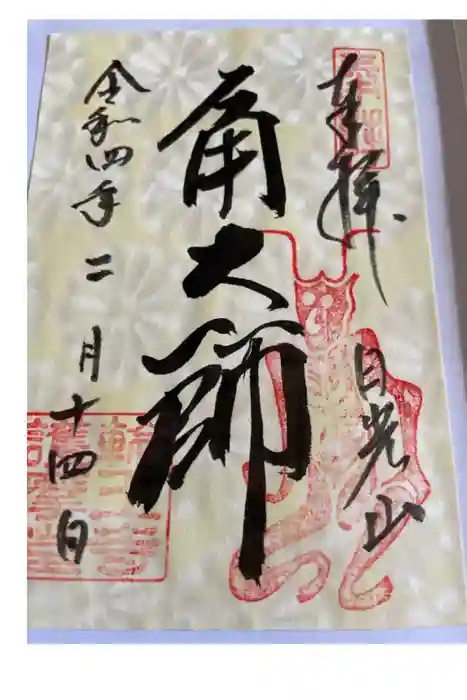 奉拝
日光山
角大師
令和四年二月十四日